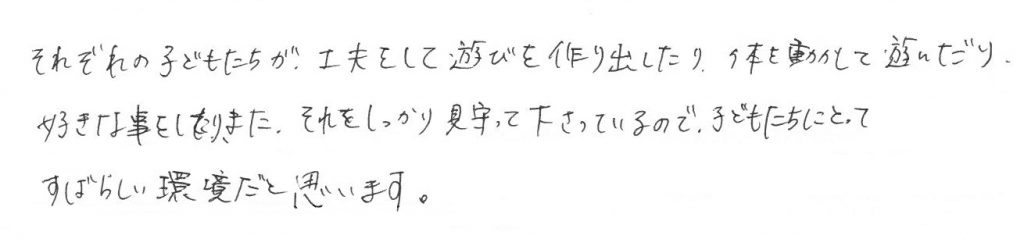 それぞれの子どもたちが、工夫をして遊びを作り出したり、体を動かして遊んだり、
好きな事をしたり、また、それをしっかり見守って下さっているので、子どもたちにとって
すばらしい環境だと思います。